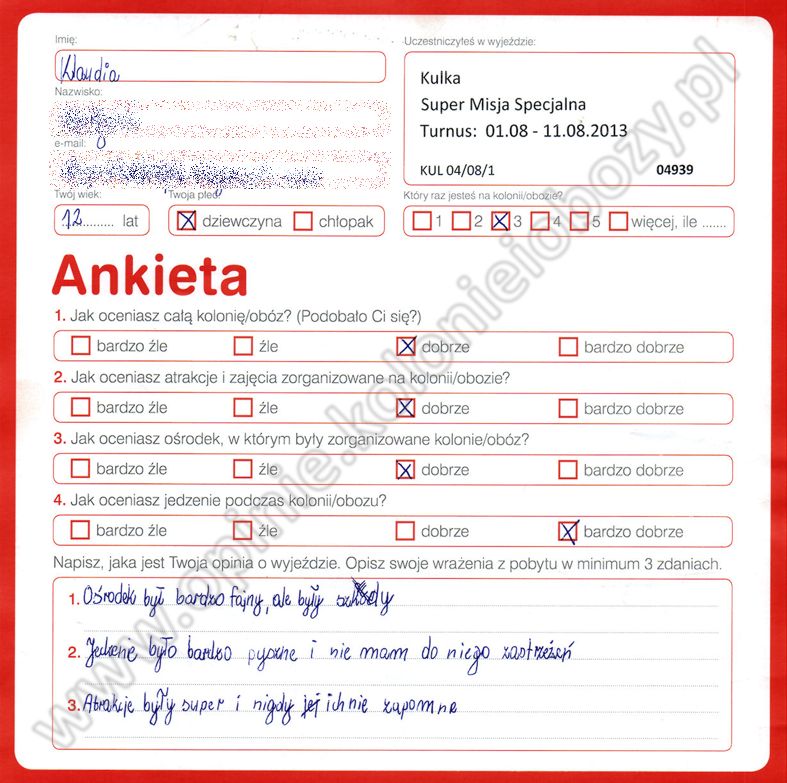 Imię:
Klaudia
Nazwisko:
e-mail:
Twój wiek:
12 lat
Twoja płeć
dziewczyna chłopak
Uczestniczyłeś w wyjeździe:
Kulka
Super Misja Specjalna
Turnus: 01.08 - 11.08.2013
KUL 04/08/1 04939
Który raz jesteś na kolonii/obozie?
1 2 3 4 5 więcej, ile .......
Ankieta
1. Jak oceniasz całą kolonię/obóz? (Podobało Ci się?)
bardzo źle źle dobrze bardzo dobrze
2. Jak oceniasz atrakcje i zajęcia zorganizowane na kolonii/obozie?
bardzo źle źle dobrze bardzo dobrze
3. Jak oceniasz ośrodek, w którym były zorganizowane kolonie/obóz?
bardzo źle źle dobrze bardzo dobrze
4. Jak oceniasz jedzenie podczas kolonii/obozu?
bardzo źle źle dobrze bardzo dobrze
Napisz, jaka jest Twoja opinia o wyjeździe. Opisz swoje wrażenia z pobytu w minimum 3 zdaniach.
1. Ośrodek był bardzo fajny, ale były
2. Jedzenie było bardzo pyszne i nie mam do niego zastrzeżeń
3. Atrakcje były super i nigdy ich nie zapomne
www.opinie.kolonieiobozy.pl